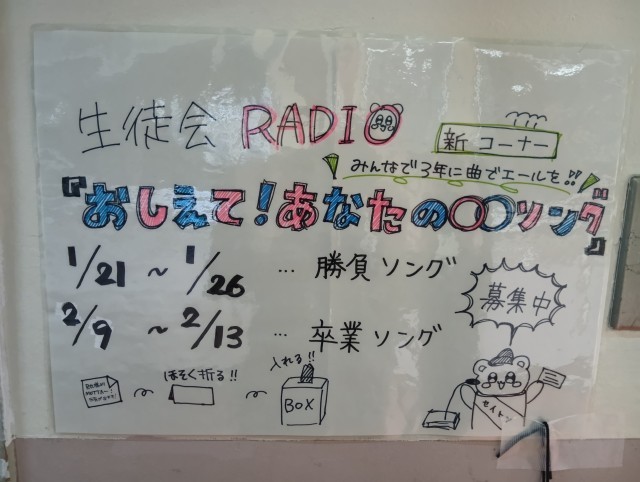 生徒会 RADIO
新 コーナー
みんなで3年に曲でエールを!!
『おしえて!あなたの○○ソング』
1/21 ~ 1/26 … 勝負ソング
2/9 ~ 2/13 … 卒業ソング
募集中
ほそく折る!!
入れる!!
BOX
セイトン